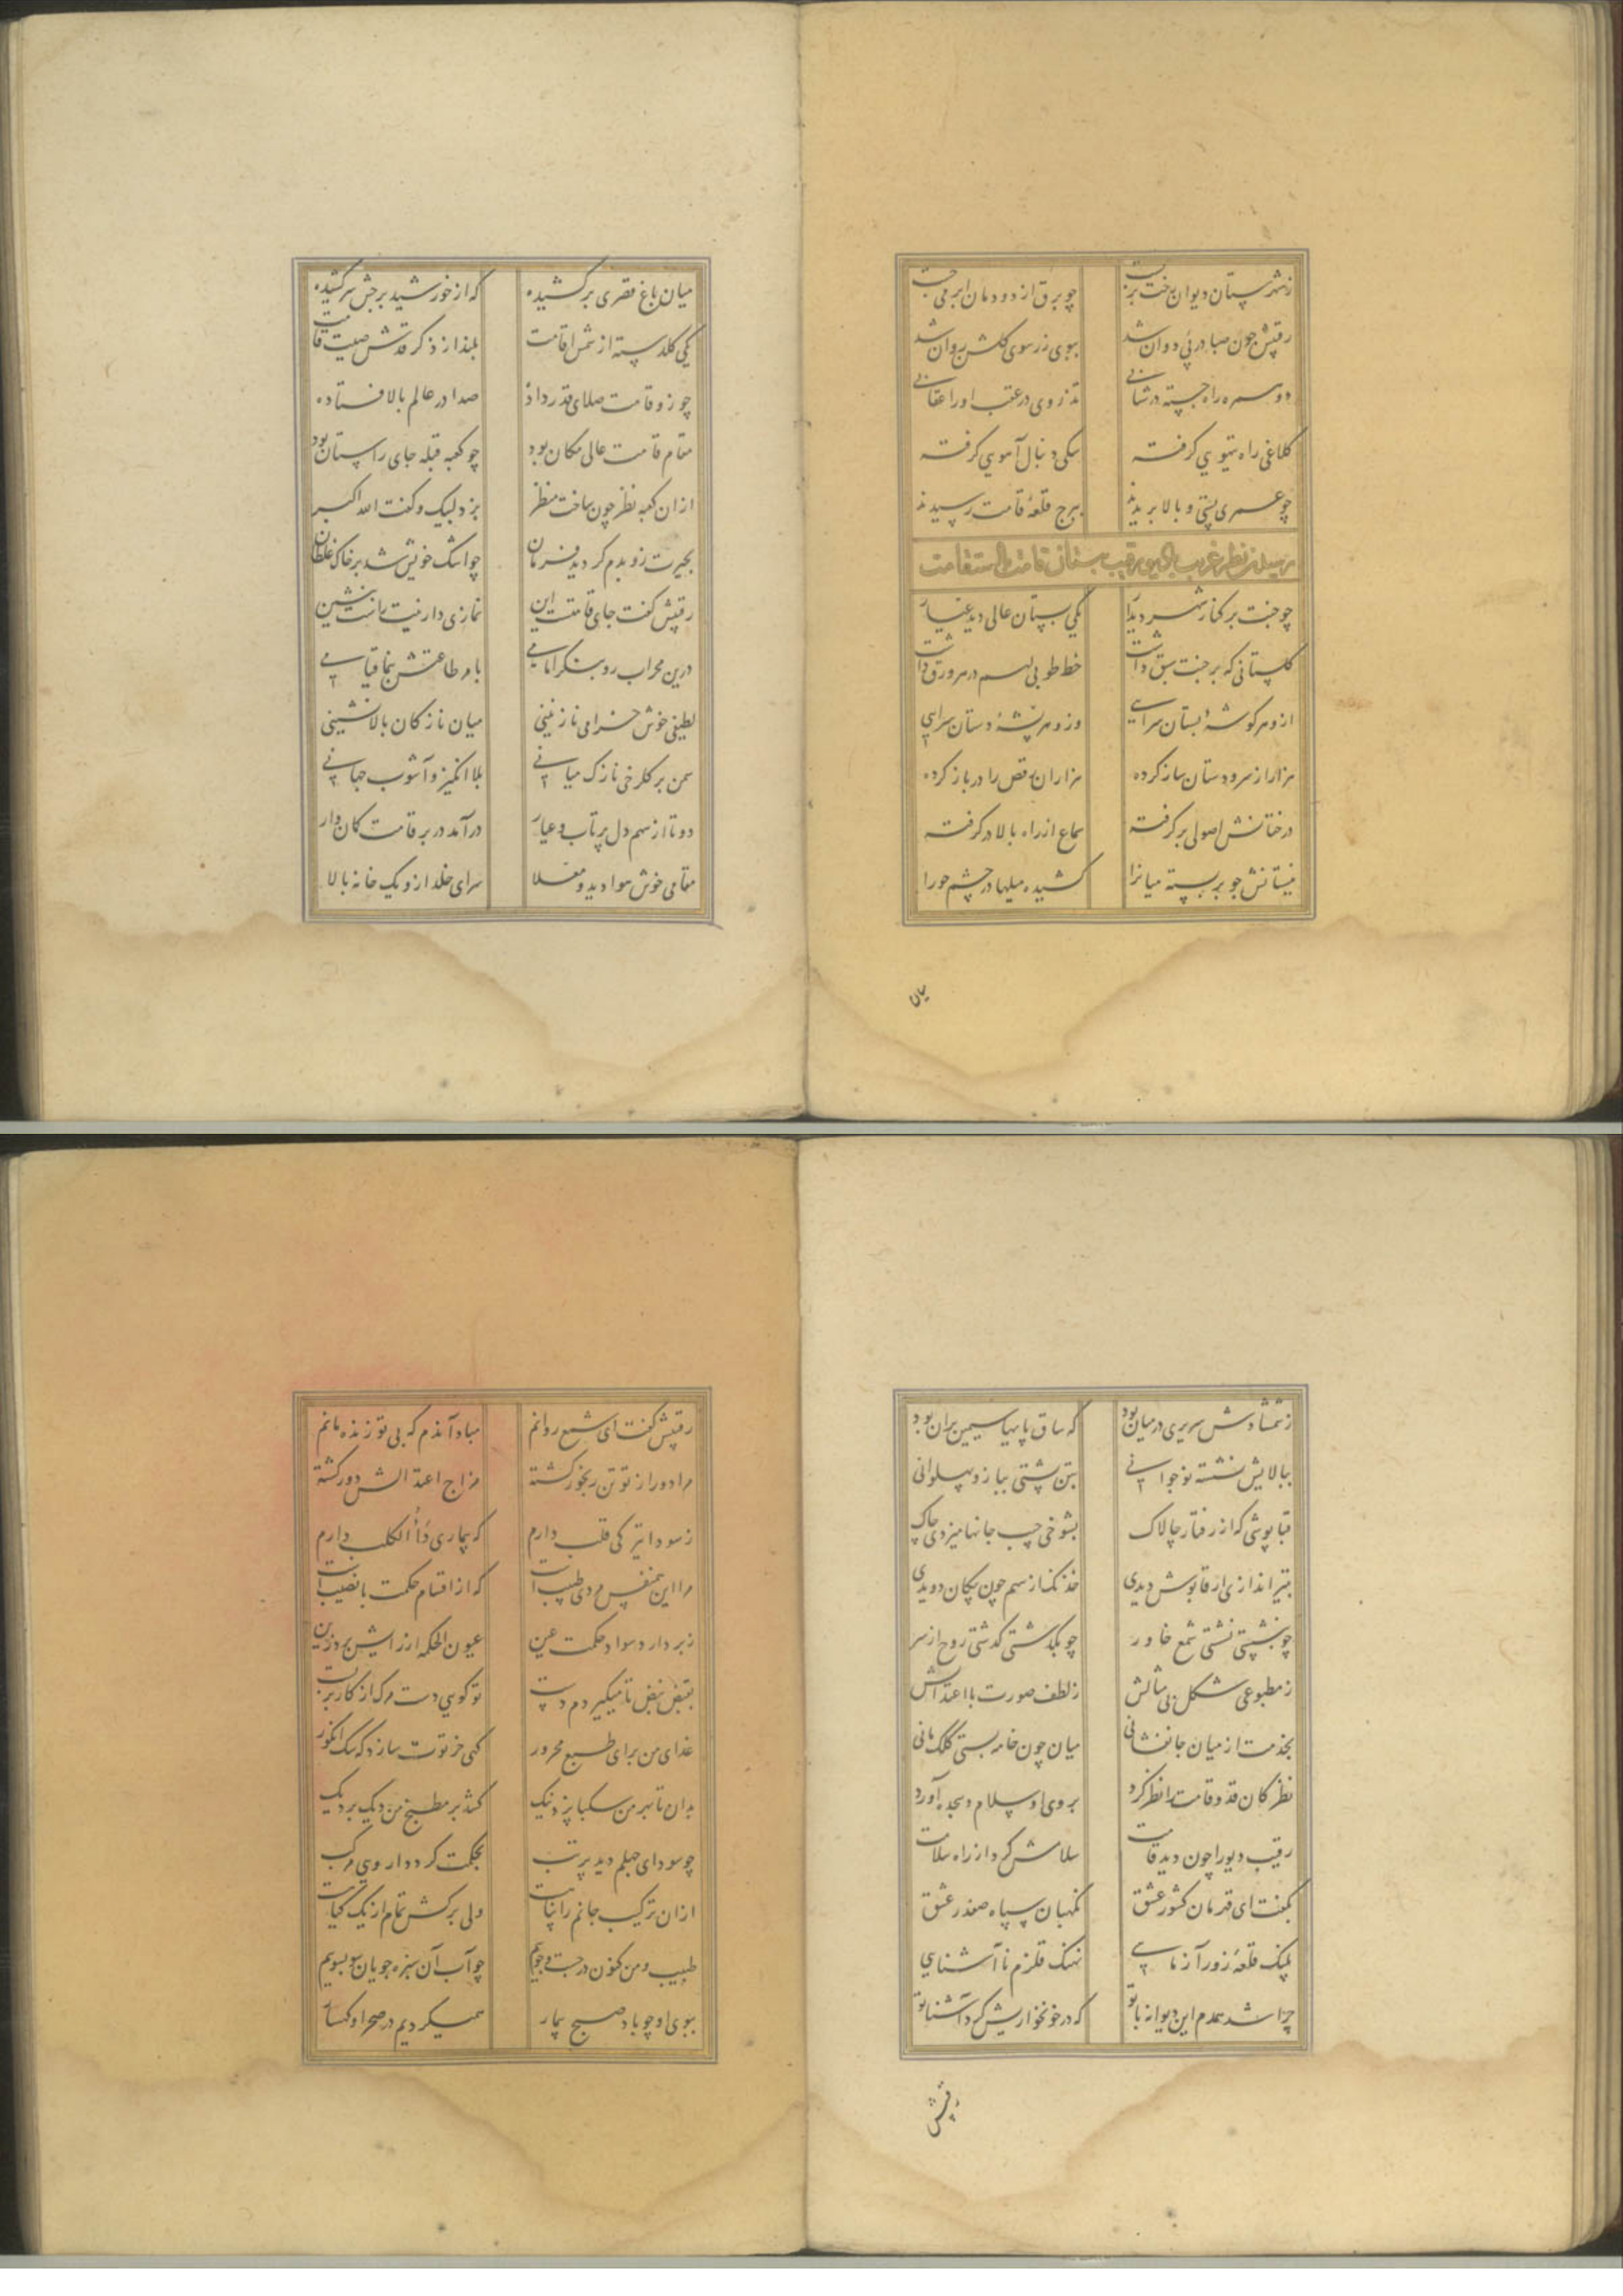 ز شهرستان دیوان رخت بربست چو برق از دودمان ابر می جست
رقیبش چون صبا در پی دوان شد ببوی زر سوی گلشن روان شد
دو سمره راه جسته در شتابی تذروی در عقب او را عقابی
کلاغی راه تیهویی گرفته سگی دنبال آهویی گرفته
چو عمری پستی و بالا بریدند ببرج قلعهٔ قامت رسیدند
رسیدن نظر غریب با دیو رقیب ببستان قامت با استقامت
چو جنت بر کنار شهر دیدار یکی بستان عالی دید عیار
گلستانی که بر جنت سبق داشت خط طوبی لهم در هر ورق داشت
ازو هر گوشهٔ بستان سرایی وزو هر پشهٔ دستان سرایی
هزار از سرو دستان ساز کرده هزاران رقص را در باز کرده
درختانش اصولی بر گرفته سماع از راه بالا در گرفته
نیستانش چو بر بسته میانرا کشیده میلها در چشم حورا
میان
میان باغ قصری برکشیده که از خورشید برجش سر کشیده
یکی گلدسته از شمس اقامت بلند از ذکر قدش صیت قامت
چو زو قامت صلای قد در داد صدا در عالم بالا فتاده
مقام قامت عالی مکان بود چو کعبه قبله جای راستان بود
ازان کعبه نظر چون ساخت منظر بزد لبیک و گفت الله اکبر
بحیرت زو بدم گردید فرمان چو اشک خویش شد بر خاک غلطان
رقیبش گفت جای قامتست این نمازی دار نیت راست بنشین
درین محراب رو بنگر امامی بامر طاعتش بنما قیامی
لطیفی خوش خرامی نازنینی میان نازکان بالانشینی
سمن بر گلرخی نازک میانی بلا انگیز و آشوب جهانی
دو تا از سهم دل پرتاب و عیار درآمد در بر قامت کمان وار
مقامی خوش هوا دید و معلا سرای خلد ازو یک خانه بالا
ز شمشادش سریری در میان بود که ساق پایها سیمین بران بود
ببالایش نشسته نوجوانی بتن پشتی ببازو پهلوانی
قبا پوشی که از رفتار چالاک بشوخی جیب جانها میزدی چاک
بتیراندازی ار قابوش دیدی خدنگ از سهم چون پیکان دویدی
چو بنشستی نشستی شمع خاور چو بگذشتی گذشتی روح از سر
ز مطبوعی شکل بی مثالش ز لطف صورت با اعتدالش
بخدمت از میان جانفشانی میان چون خامه بستی کلک مانی
نظر کان قد و قامت را نظر کرد بروی او سلام و سجده آورد
رقیب دیو را چون دید قامت سلامش کرد از راه سلامت
بگفت ای قهرمان کشور عشق نگهبان سپاه صفدر عشق
پلنگ قلعهٔ زورآزمایی نهنگ قلزم ناآشنایی
چرا شد همدم این دیوانه با تو که در خونخواریش کرد آشنا تو
رقیبش
رقیبش گفت ای شمع روانم مباد آندم که بی تو زنده مانم
مرا دور از تو تن رنجور گشته مزاج اعتدالش دور گشته
ز سودا تیرگی قلب دارم که بیماری داء الکلب دارم
مرا این همنفس مردی طبیب است که از اقسام حکمت با نصیب است
ز بر دارد سواد حکمت عین عیون الحکمه ار زایش بروزین
بقبض نبض تا میگیردم دست تو گویی دست مرگ از کار بربست
غذای من برای طبع محرور کهی خر توت سازد گه سک انگور
بدان تا بهر من سکبا پزد نیک کشد بر مطبخ من دیک بر دیک
چو سودای جهلم دید پر تب بحکمت کرد داروی مرکب
ازان ترکیب جانم را نپاست ولی برگش تمام از یک گیاست
طبیب و من کنون در جست و جوییم چو آب آن سبزه جویان سو بسوییم
ببوی او چو باد صبح بیمار همیگردیم در صحرا و کهسار